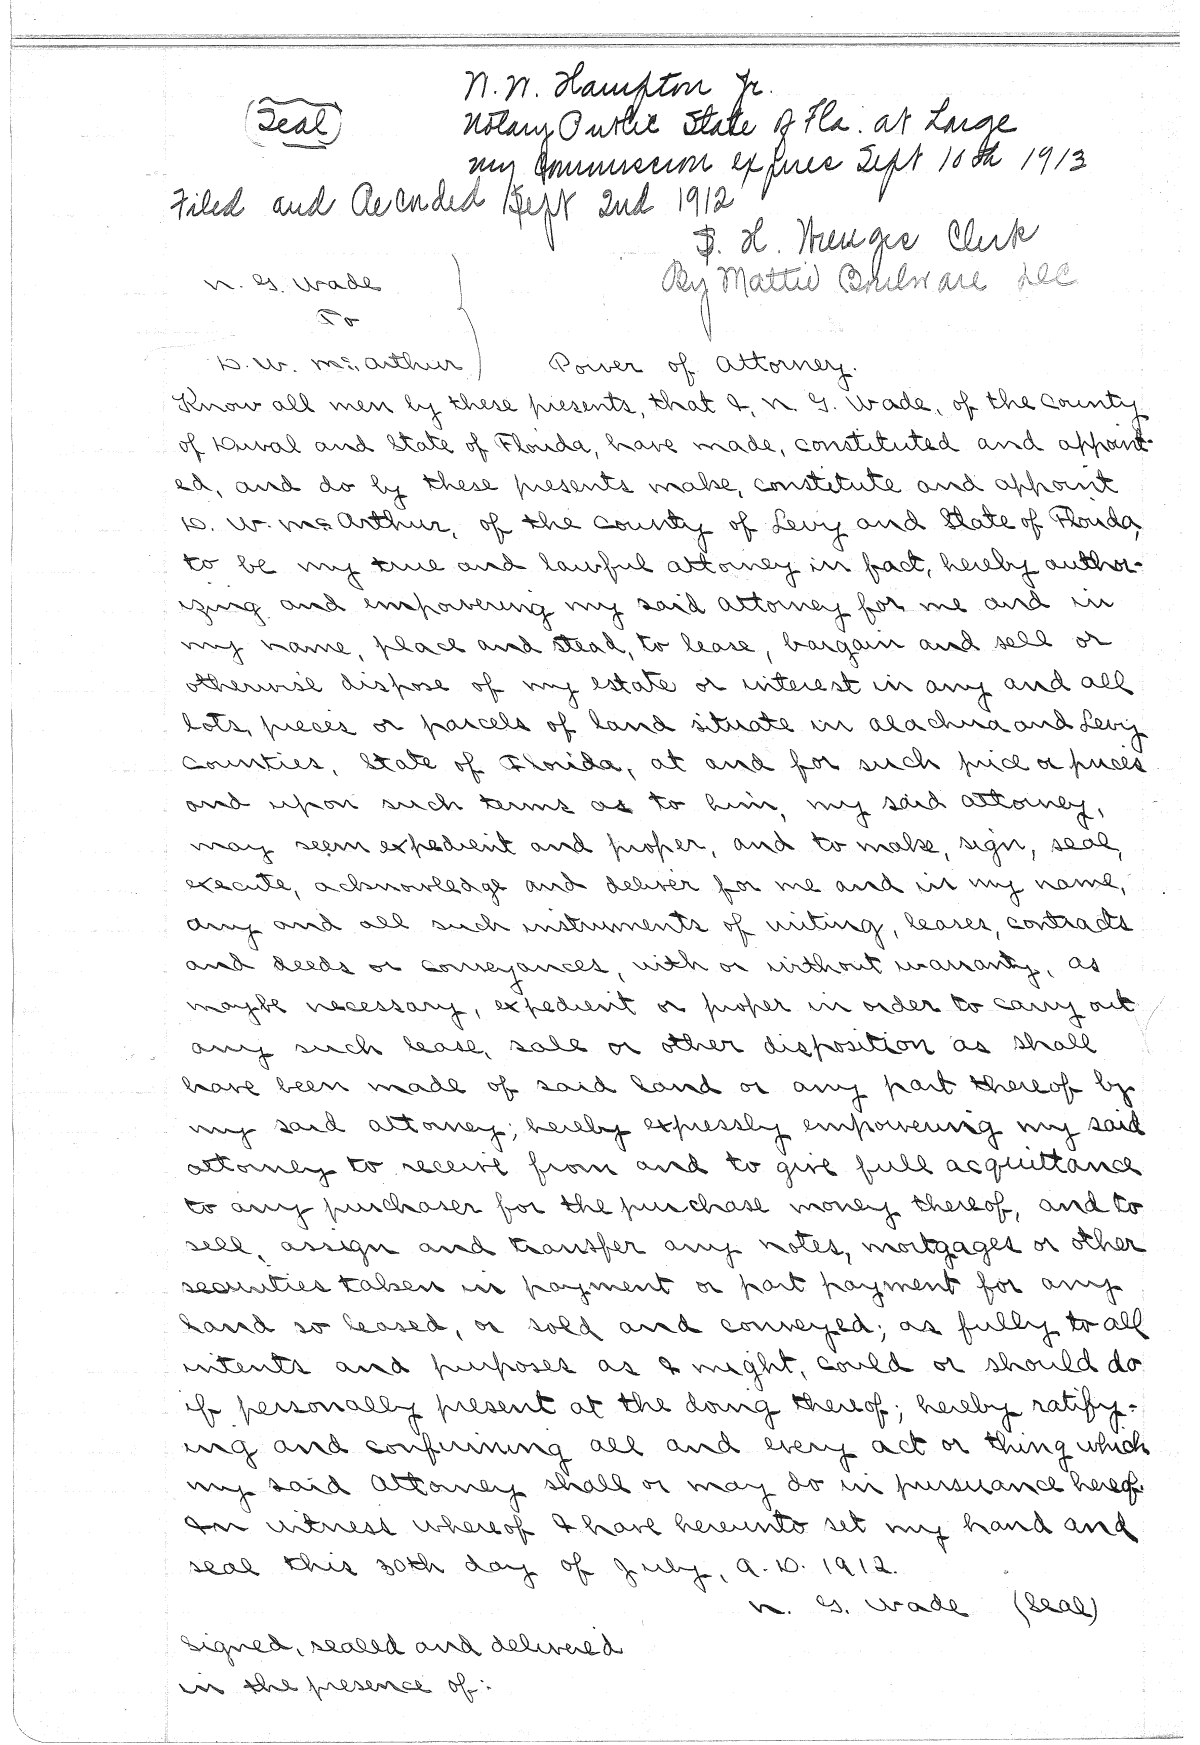 N. N. Hampton Jr.
(Seal) Notary Public State of Fla. at Large
my Commission expires Sept 10th 1913
Filed and Recorded Sept 2nd 1912
H. Clerk
N. G. Wade By Mattie D.C.
To
D. W. McArthur Power of Attorney.
Know all men by these presents, that I, N. G. Wade, of the County
of Duval and State of Florida, have made, constituted and appoint-
ed, and do by these presents make, constitute and appoint
D. W. McArthur, of the County of Levy and State of Florida,
to be my true and lawful attorney in fact, hereby author-
izing and empowering my said attorney for me and in
my name, place and stead, to lease, bargain and sell or
otherwise dispose of my estate or interest in any and all
lots, pieces or parcels of land situate in Alachua and Levy
Counties, State of Florida, at and for such price or prices
and upon such terms as to him, my said attorney,
may seem expedient and proper, and to make, sign, seal,
execute, acknowledge and deliver for me and in my name,
any and all such instruments of writing, leases, contracts
and deeds or conveyances, with or without warranty, as
maybe necessary, expedient or proper in order to carry out
any such lease, sale or other disposition as shall
have been made of said land or any part thereof by
my said attorney; hereby expressly empowering my said
attorney to receive from and to give full acquittance
to any purchaser for the purchase money thereof, and to
sell, assign and transfer any notes, mortgages or other
securities taken in payment or part payment for any
land so leased, or sold and conveyed; as fully to all
intents and purposes as I might, could or should do
if personally present at the doing thereof; hereby ratify-
ing and confirming all and every act or thing which
my said Attorney shall or may do in pursuance hereof.
In witness whereof I have hereunto set my hand and
seal this 30th day of July, A. D. 1912.
N. G. Wade (Seal)
Signed, sealed and delivered
in the presence of: